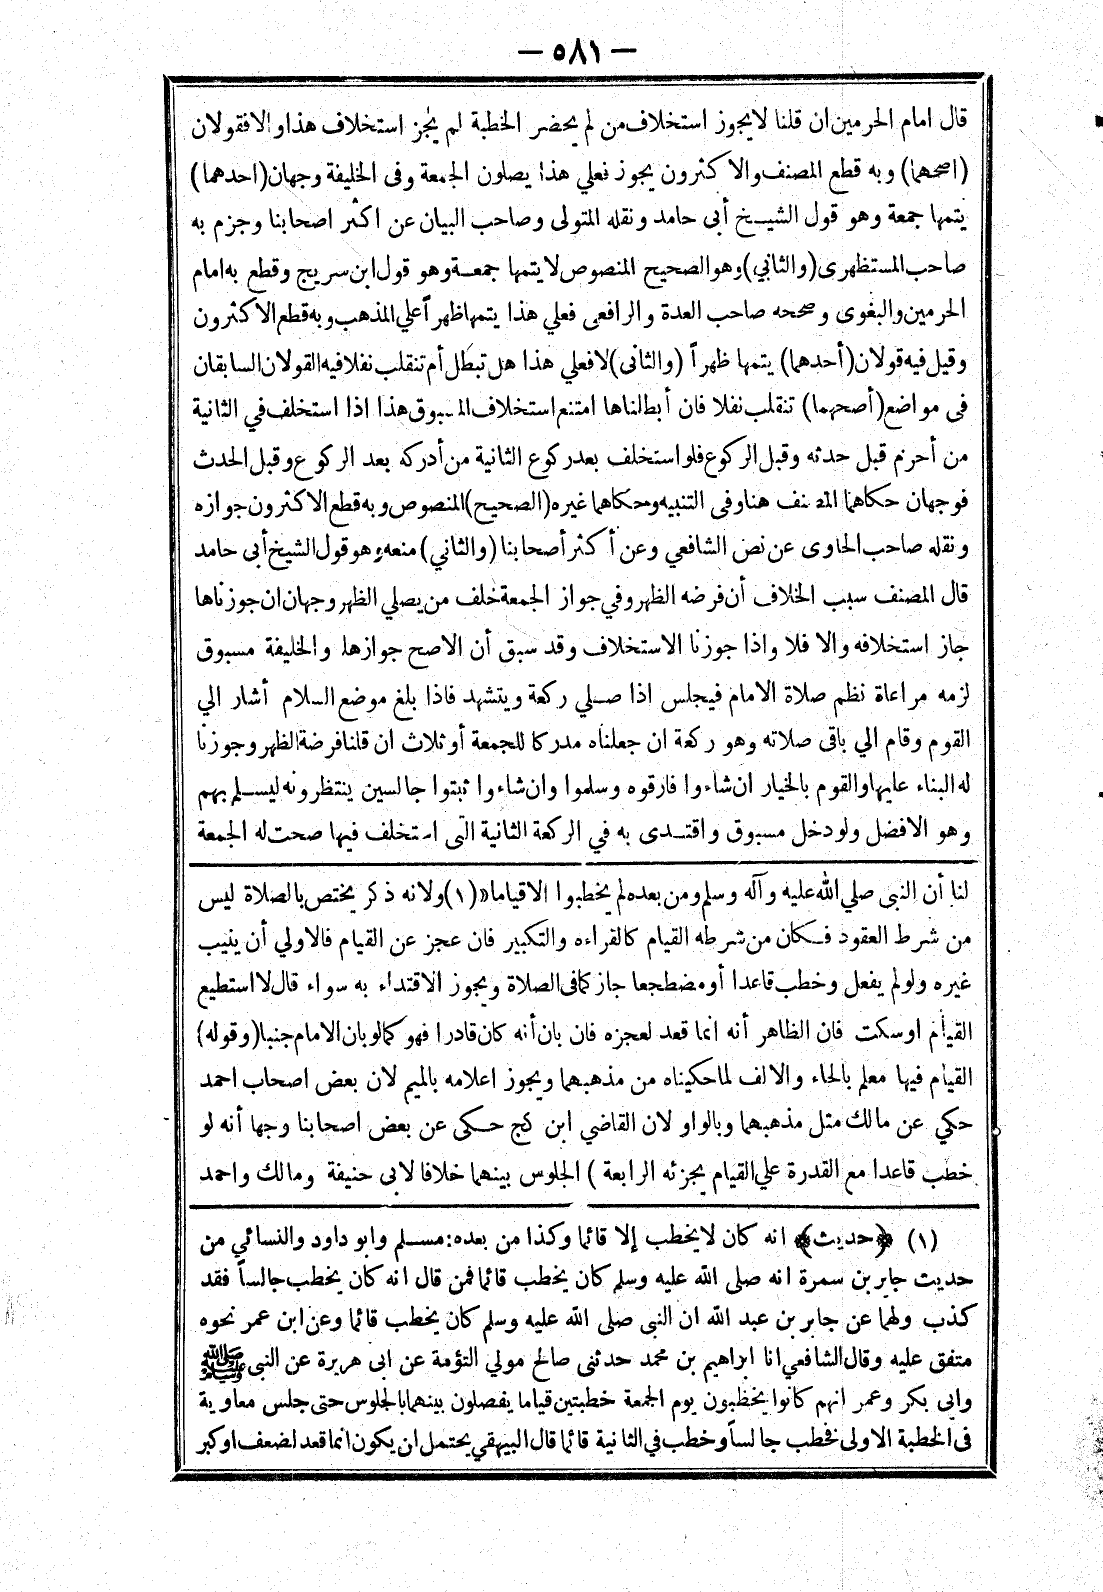 — ٥٨١ —
قال امام الحرمين ان قلنا لايجوز استخلاف من لم يحضر الخطبة لم يجز استخلاف هذا والا فقولان
(اصحهما) وبه قطع المصنف والاكثرون يجوز فعلي هذا يصلون الجمعة وفى الخليفة وجهان (احدهما)
يتمها جمعة وهو قول الشيخ أبى حامد ونقله المتولى وصاحب البيان عن اكثر اصحابنا وجزم به
صاحب المستظهرى (والثاني) وهو الصحيح المنصوص لا يتمها جمعة وهو قول ابن سريج وقطع به امام
الحرمين والبغوى وصححه صاحب العدة والرافعى فعلي هذا يتمها ظهراً علي المذهب وبه قطع الاكثرون
وقيل فيه قولان (أحدهما) يتمها ظهراً (والثانى) لا فعلي هذا هل تبطل أم تنقلب نفلا فيه القولان السابقان
فى مواضع (أصحهما) تنقلب نفلا فان أبطلناها امتنع استخلاف المسبوق هذا اذا استخلف في الثانية
من أحرم قبل حدثه وقبل الركوع فلو استخلف بعد ركوع الثانية من أدركه بعد الركوع وقبل الحدث
فوجهان حكاهما المصنف هنا وفى التنبيه وحكاهما غيره (الصحيح) المنصوص وبه قطع الاكثرون جوازه
ونقله صاحب الحاوى عن نص الشافعي وعن أكثر أصحابنا (والثاني) منعه وهو قول الشيخ أبى حامد
قال المصنف سبب الخلاف أن فرضه الظهر وفي جواز الجمعة خلف من يصلي الظهر وجهان ان جوزناها
جاز استخلافه والا فلا واذا جوزنا الاستخلاف وقد سبق أن الاصح جوازها والخليفة مسبوق
لزمه مراعاة نظم صلاة الامام فيجلس اذا صلي ركعة ويتشهد فاذا بلغ موضع السلام أشار الي
القوم وقام الي باقى صلاته وهو ركعة ان جعلناه مدركا للجمعة أو ثلاث ان قلنا فرضة الظهر وجوزنا
له البناء عليها والقوم بالخيار ان شاءوا فارقوه وسلموا وان شاءوا ثبتوا جالسين ينتظرونه ليسلم بهم
وهو الافضل ولو دخل مسبوق واقتدى به في الركعة الثانية التى استخلف فيها صحت له الجمعة
لنا أن النبى صلي الله عليه وآله وسلم ومن بعده لم يخطبوا الا قياما» (١) ولانه ذكر يختص بالصلاة ليس
من شرط العقود فكان من شرطه القيام كالقراءه والتكبير فان عجز عن القيام فالاولي أن ينيب
غيره ولو لم يفعل وخطب قاعدا أو مضطجعا جاز كما فى الصلاة ويجوز الاقتداء به سواء قال لا استطيع
القيام او سكت فان الظاهر أنه انما قعد لعجزه فان بان أنه كان قادرا فهو كما لو بان الامام جنبا (وقوله)
القيام فيها معلم بالحاء والالف لما حكيناه من مذهبهما ويجوز اعلامه بالميم لان بعض اصحاب احمد
حكي عن مالك مثل مذهبهما وبالواو لان القاضي ابن كج حكى عن بعض اصحابنا وجها أنه لو
خطب قاعدا مع القدرة علي القيام يجزئه الرابعة ) الجلوس بينهما خلافا لابى حنيفة ومالك واحمد
(١) ﴿حديث﴾ انه كان لا يخطب إلا قائما وكذا من بعده: مسلم وابو داود والنسائي من
حديث جابر بن سمرة انه صلى الله عليه وسلم كان يخطب قائما فمن قال انه كان يخطب جالساً فقد
كذب ولهما عن جابر بن عبد الله ان النبى صلى الله عليه وسلم كان يخطب قائما وعن ابن عمر نحوه
متفق عليه وقال الشافعي انا ابراهيم بن محمد حدثنى صالح مولي التؤمة عن ابى هريرة عن النبى ﷺ
وابى بكر وعمر انهم كانوا يخطبون يوم الجمعة خطبتين قياما يفصلون بينهما بالجلوس حتى جلس معاوية
فى الخطبة الاولى فخطب جالساً وخطب في الثانية قائما قال البيهقي يحتمل ان يكون انما قعد لضعف او كبر